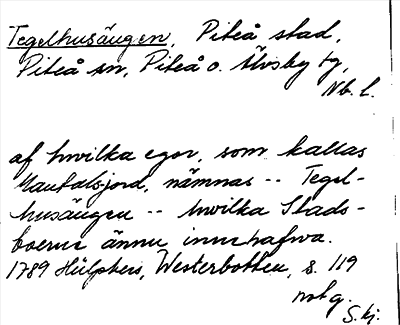 Tegelhusängen, Piteå stad,
Piteå sn, Piteå o. Älvsby tg,
Nb. l.
af hwilka egor, som kallas
Mankalsjord, nämnas -- Tegel-
husängen -- hwilka Stads-
boerne ännu innehafwa.
1789 Hülphers, Westerbotten, s. 119
not g.
S. kj.